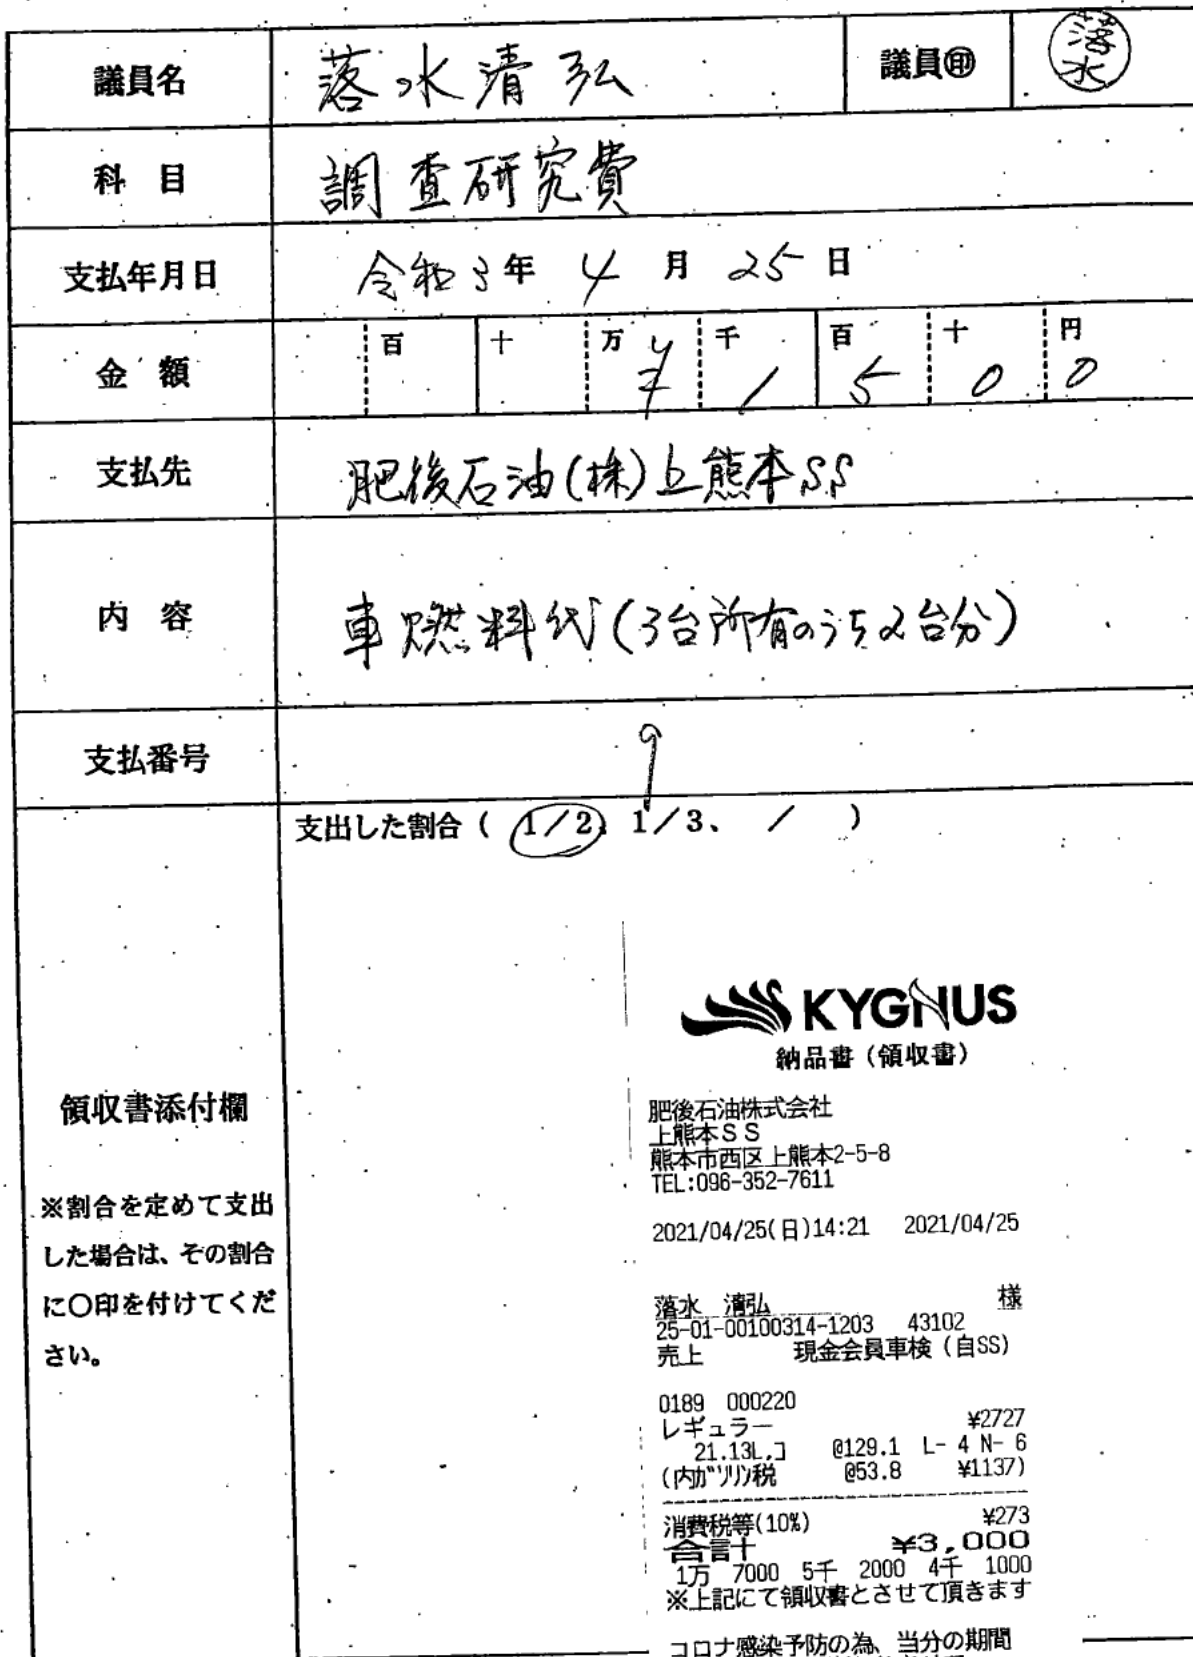 議員名 落水清弘 議員㊞ 落水
科 目 調査研究費
支払年月日 令和3年 4月 25日
金 額 百 十 万 千 百 十 円
¥ 1 5 0 0
支払先 肥後石油(株)上熊本SS
内 容 車燃料代(3台所有のうち2台分)
支払番号 9
支出した割合( 1/2、1/3、 / )
領収書添付欄
※割合を定めて支出
した場合は、その割合
に〇印を付けてくだ
さい。
KYGNUS
納品書(領収書)
肥後石油株式会社
上熊本SS
熊本市西区上熊本2-5-8
TEL:096-352-7611
2021/04/25(日)14:21 2021/04/25
落水 清弘 様
25-01-00100314-1203 43102
売上 現金会員車検(自SS)
0189 000220
レギュラー ¥2727
21.13L.コ @129.1 L- 4 N- 6
(内ガソリン税 @53.8 ¥1137)
消費税等(10%) ¥273
合計 ¥3,000
1万 7000 5千 2000 4千 1000
※上記にて領収書とさせて頂きます
コロナ感染予防の為、当分の期間